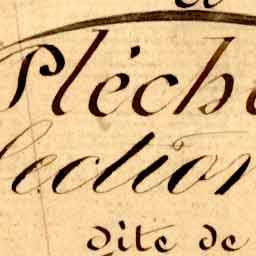 Pléch
Section
dite de